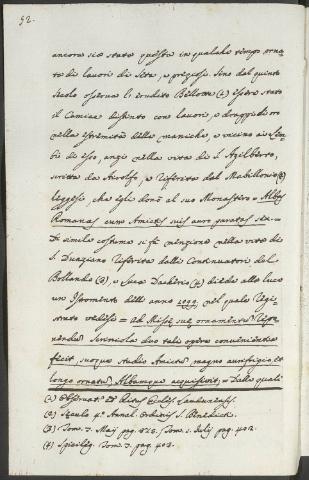 52.
ancora sia stata questa in qualche tempo orna-
to di lavori di seta, e preziosi. Sino dal quinto
secolo osserva l'erudito Bellotta (1) essere stato
il Camice distinto con lavori, e drappi di oro
nella estremità delle maniche, e vicino ai Lem-
bi di esso, anzi nella vita di S. Agilberto,
scritta da e riferita dal Mabillonio (2)
leggesi, che egli donò al suo Monastero = Albas
Romanas cum Amictis suis auro paratas sex =
Di simile costume si fa menzione nella vita di
S. riferita dalli Continuatori del
Bollando (3), e Luca Dacherio (4) diede alla luce
un Istromento dell'anno nel quale regi-
strato vedesi = ad Missæ suæ ornamentum
duo tali opere convenientia
fecit, suoque studio Amictus magno aurifrigio et
longo ornatus, Albamque acquisivit = Dalli quali
(1) Observat. ad Ritus Eccles. Laudunensis.
(2) Sæculo 4.° Annal. Ordinis S. Benedicti.
(3) Tom. 7. Maij pag. 826. Tom. 1. Julij pag. 402.
(4) Spicileg. Tom. 7. pag. 403.